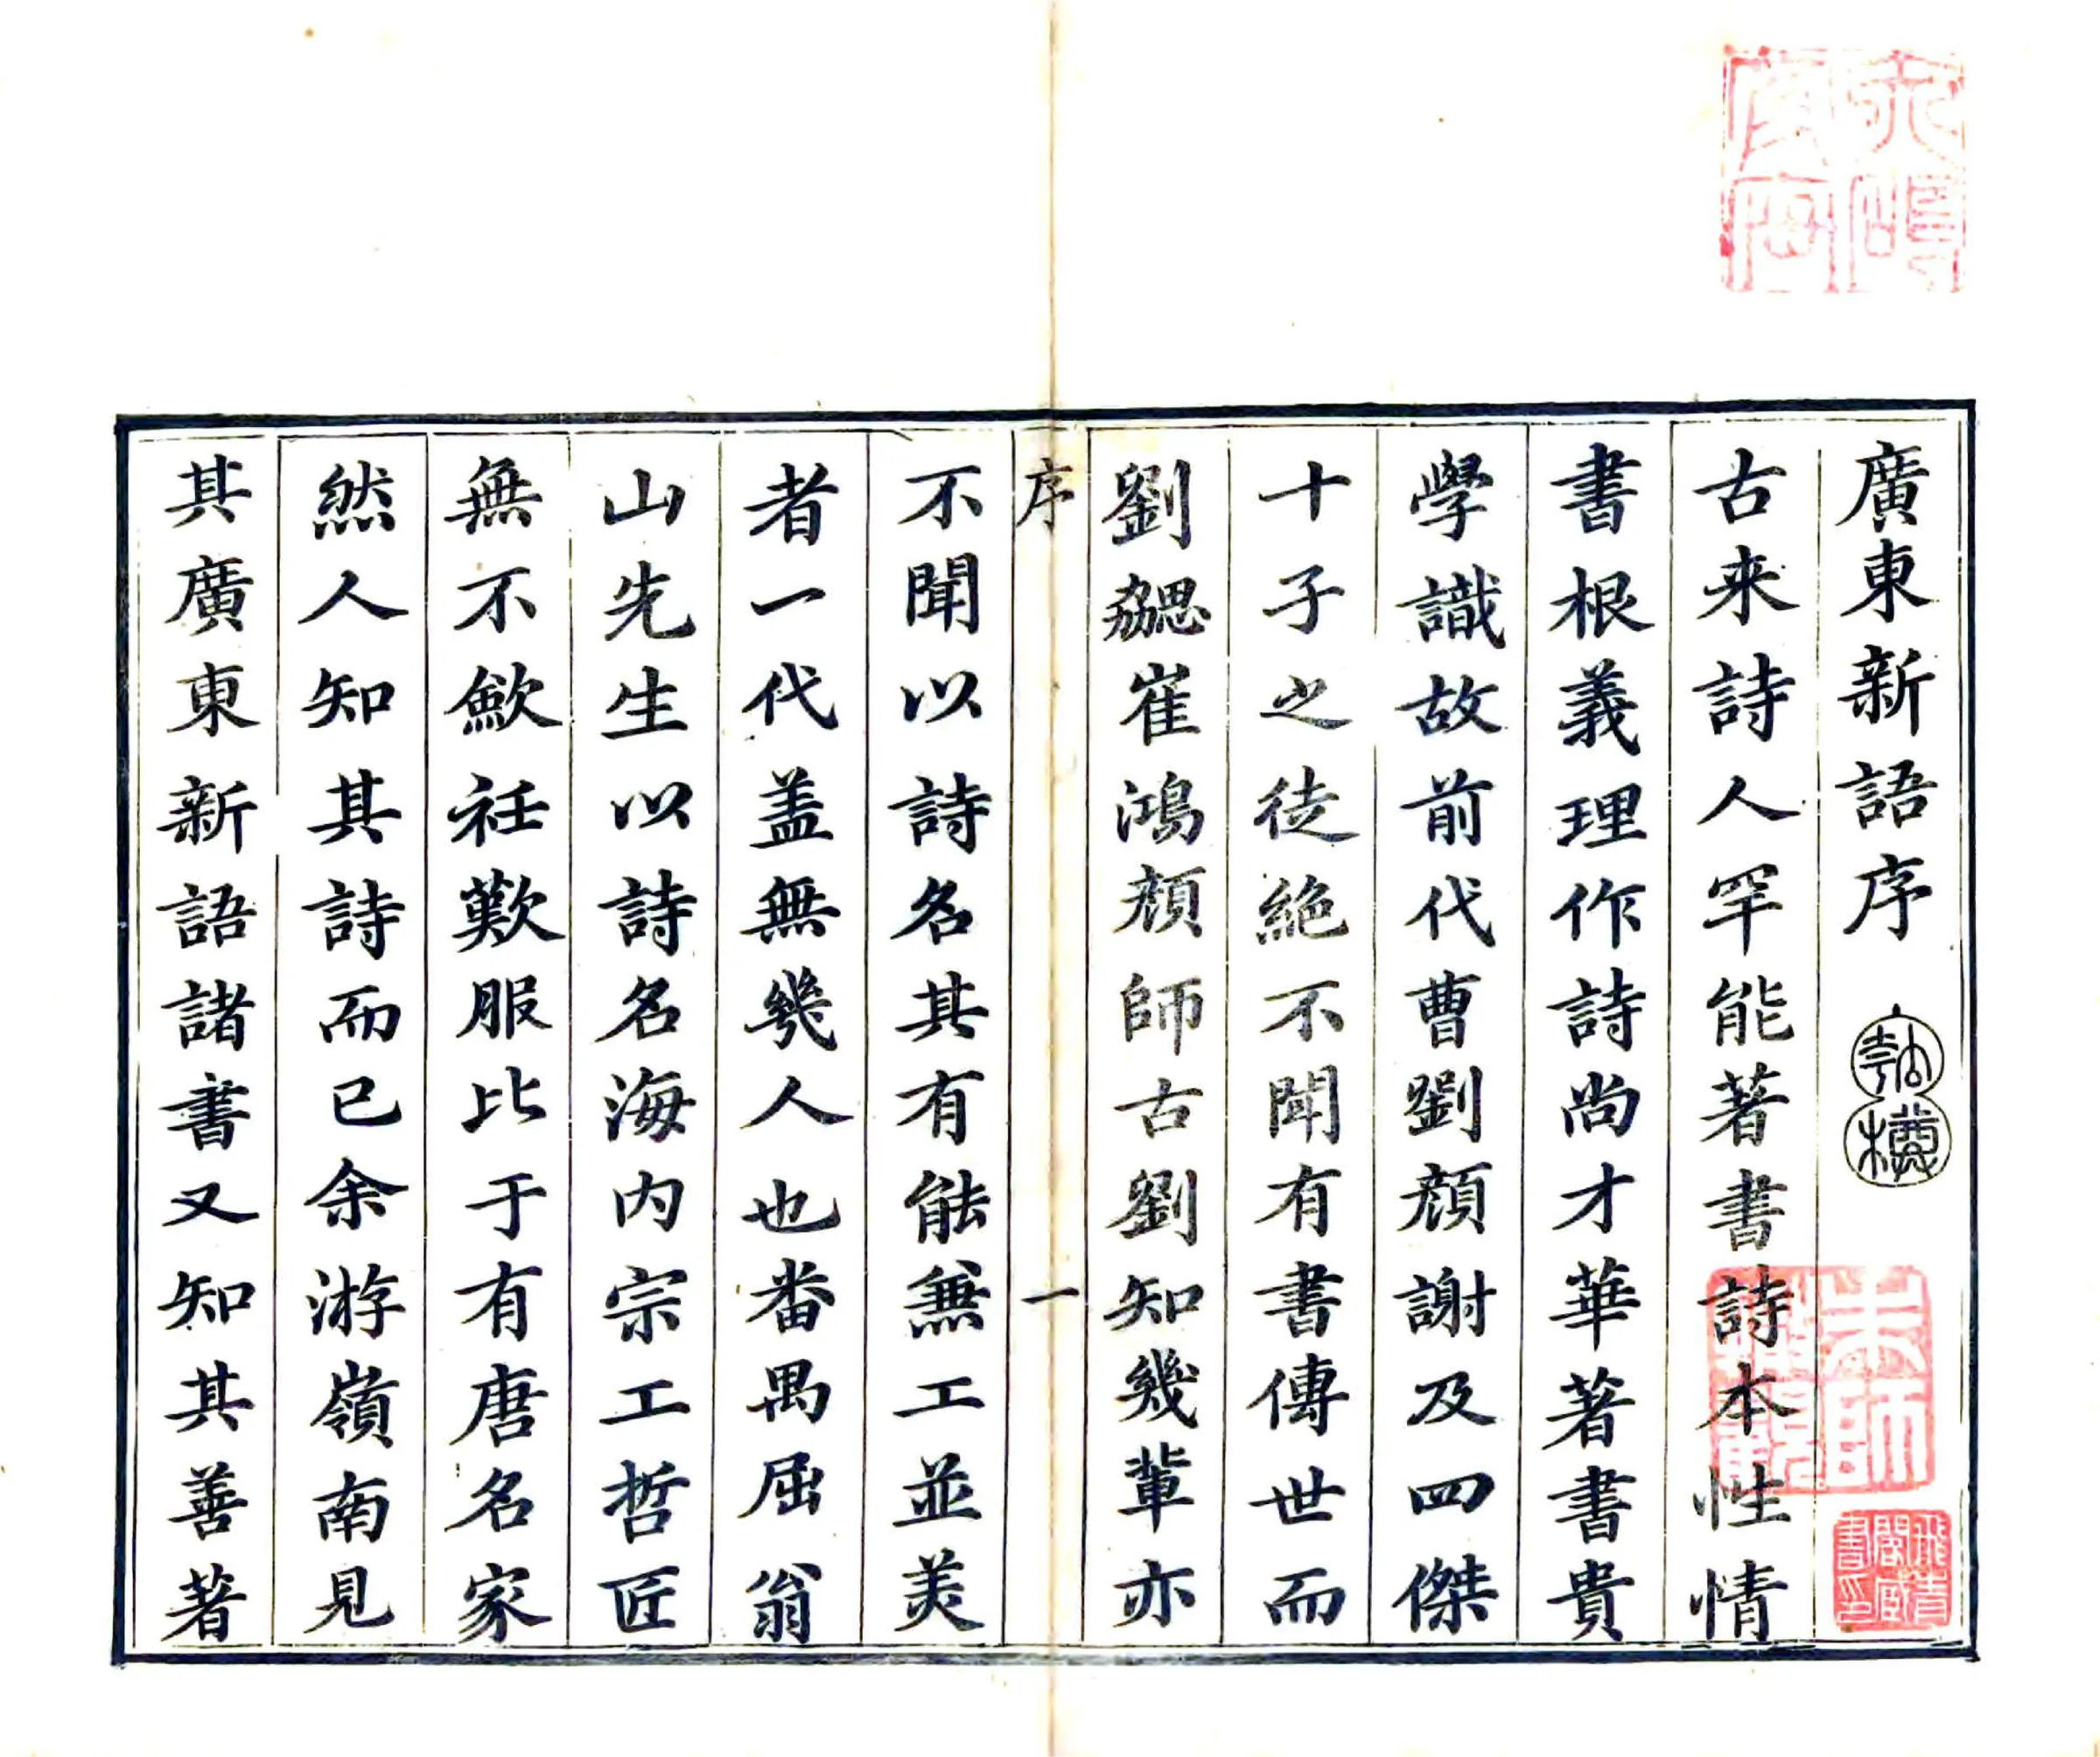 廣東新語序
古来詩人罕能著書詩本性情
書根義理作詩尚才華著書貴
學識故前代曹劉顔謝及四傑
十子之徒絶不聞有書傳世而
劉勰崔鴻顔師古劉知幾輩亦
序 一
不聞以詩名其有能兼工並美
者一代盖無幾人也番禺屈翁
山先生以詩名海内宗工哲匠
無不歛衽歎服比于有唐名家
然人知其詩而已余游嶺南見
其廣東新語諸書又知其善著